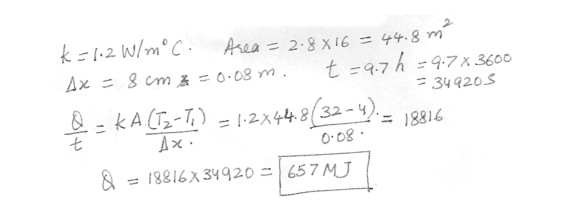 k = 1.2 W/m°C. Area = 2.8 x 16 = 44.8 m²
Δx = 8 cm = 0.08 m. t = 9.7 h = 9.7 x 3600
= 34920 S
Q/t = kA (T₂-T₁)/Δx. = 1.2 x 44.8 (32-4)/0.08. = 18816
Q = 18816 x 34920 = 657 MJ